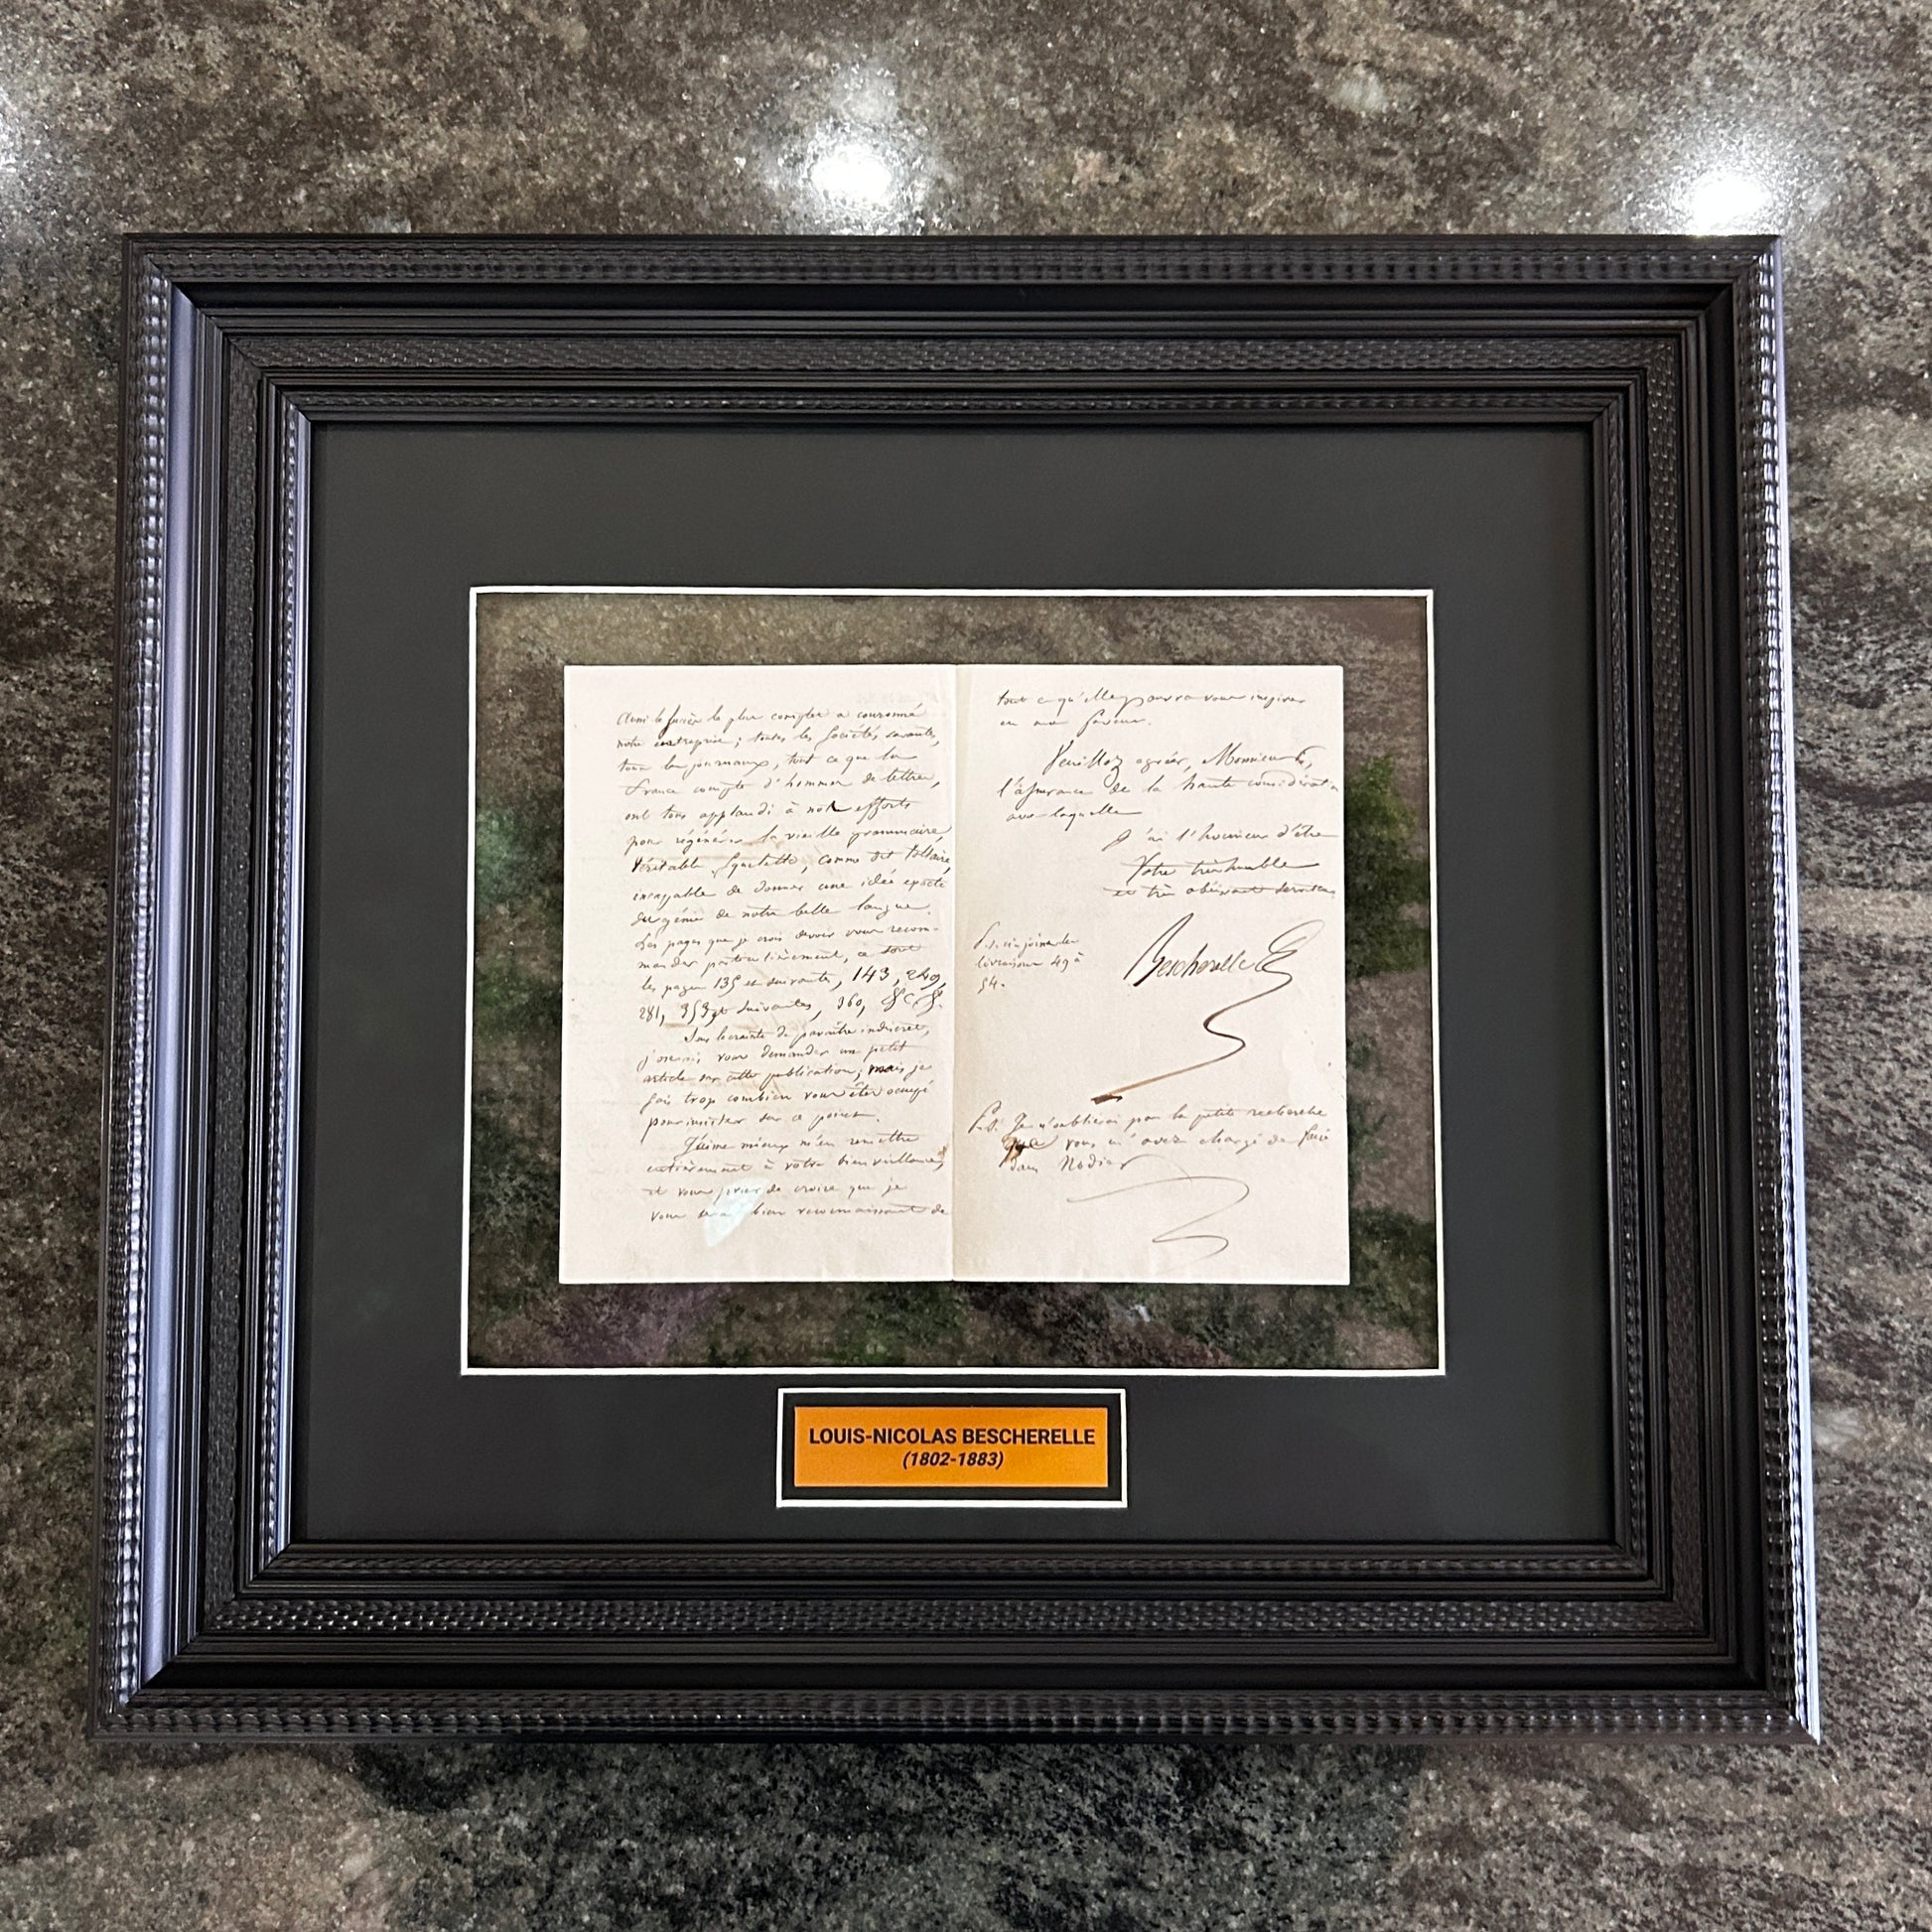 Aussi le succès le plus complet a couronné
notre entreprise; toutes les Sociétés savantes,
tous les journaux, tout ce que la
France compte d'hommes de lettres,
ont tous applaudi à nos efforts
pour régénérer la vieille grammaire
Véritable Squelette, comme dit Voltaire,
incapable de donner une idée exacte
du génie de notre belle langue.
Les pages que je crois devoir vous recom-
mander particulièrement, ce sont
les pages 135 et suivantes, 143, 249,
281, 353 et suivantes, 360, &c &.
Sans la crainte de paraître indiscret,
j'oserais vous demander un petit
article sur cette publication; mais je
sais trop combien vous êtes occupé
pour insister sur ce point.
J'aime mieux m'en remettre
entièrement à votre bienveillance,
et vous prier de croire que je
vous serai bien reconnaissant de
tout ce qu'elle pourra vous inspirer
en ma faveur.
Veuillez agréer, Monsieur,
l'assurance de la haute considération
avec laquelle
J'ai l'honneur d'être
Votre très humble
et très obéissant serviteur
Bescherelle
P.S. ci-joint les
livraisons 49 à
54.
P.S. Je n'oublierai pas la petite recherche
que vous m'avez chargé de faire
dans Nodier
LOUIS-NICOLAS BESCHERELLE
(1802-1883)